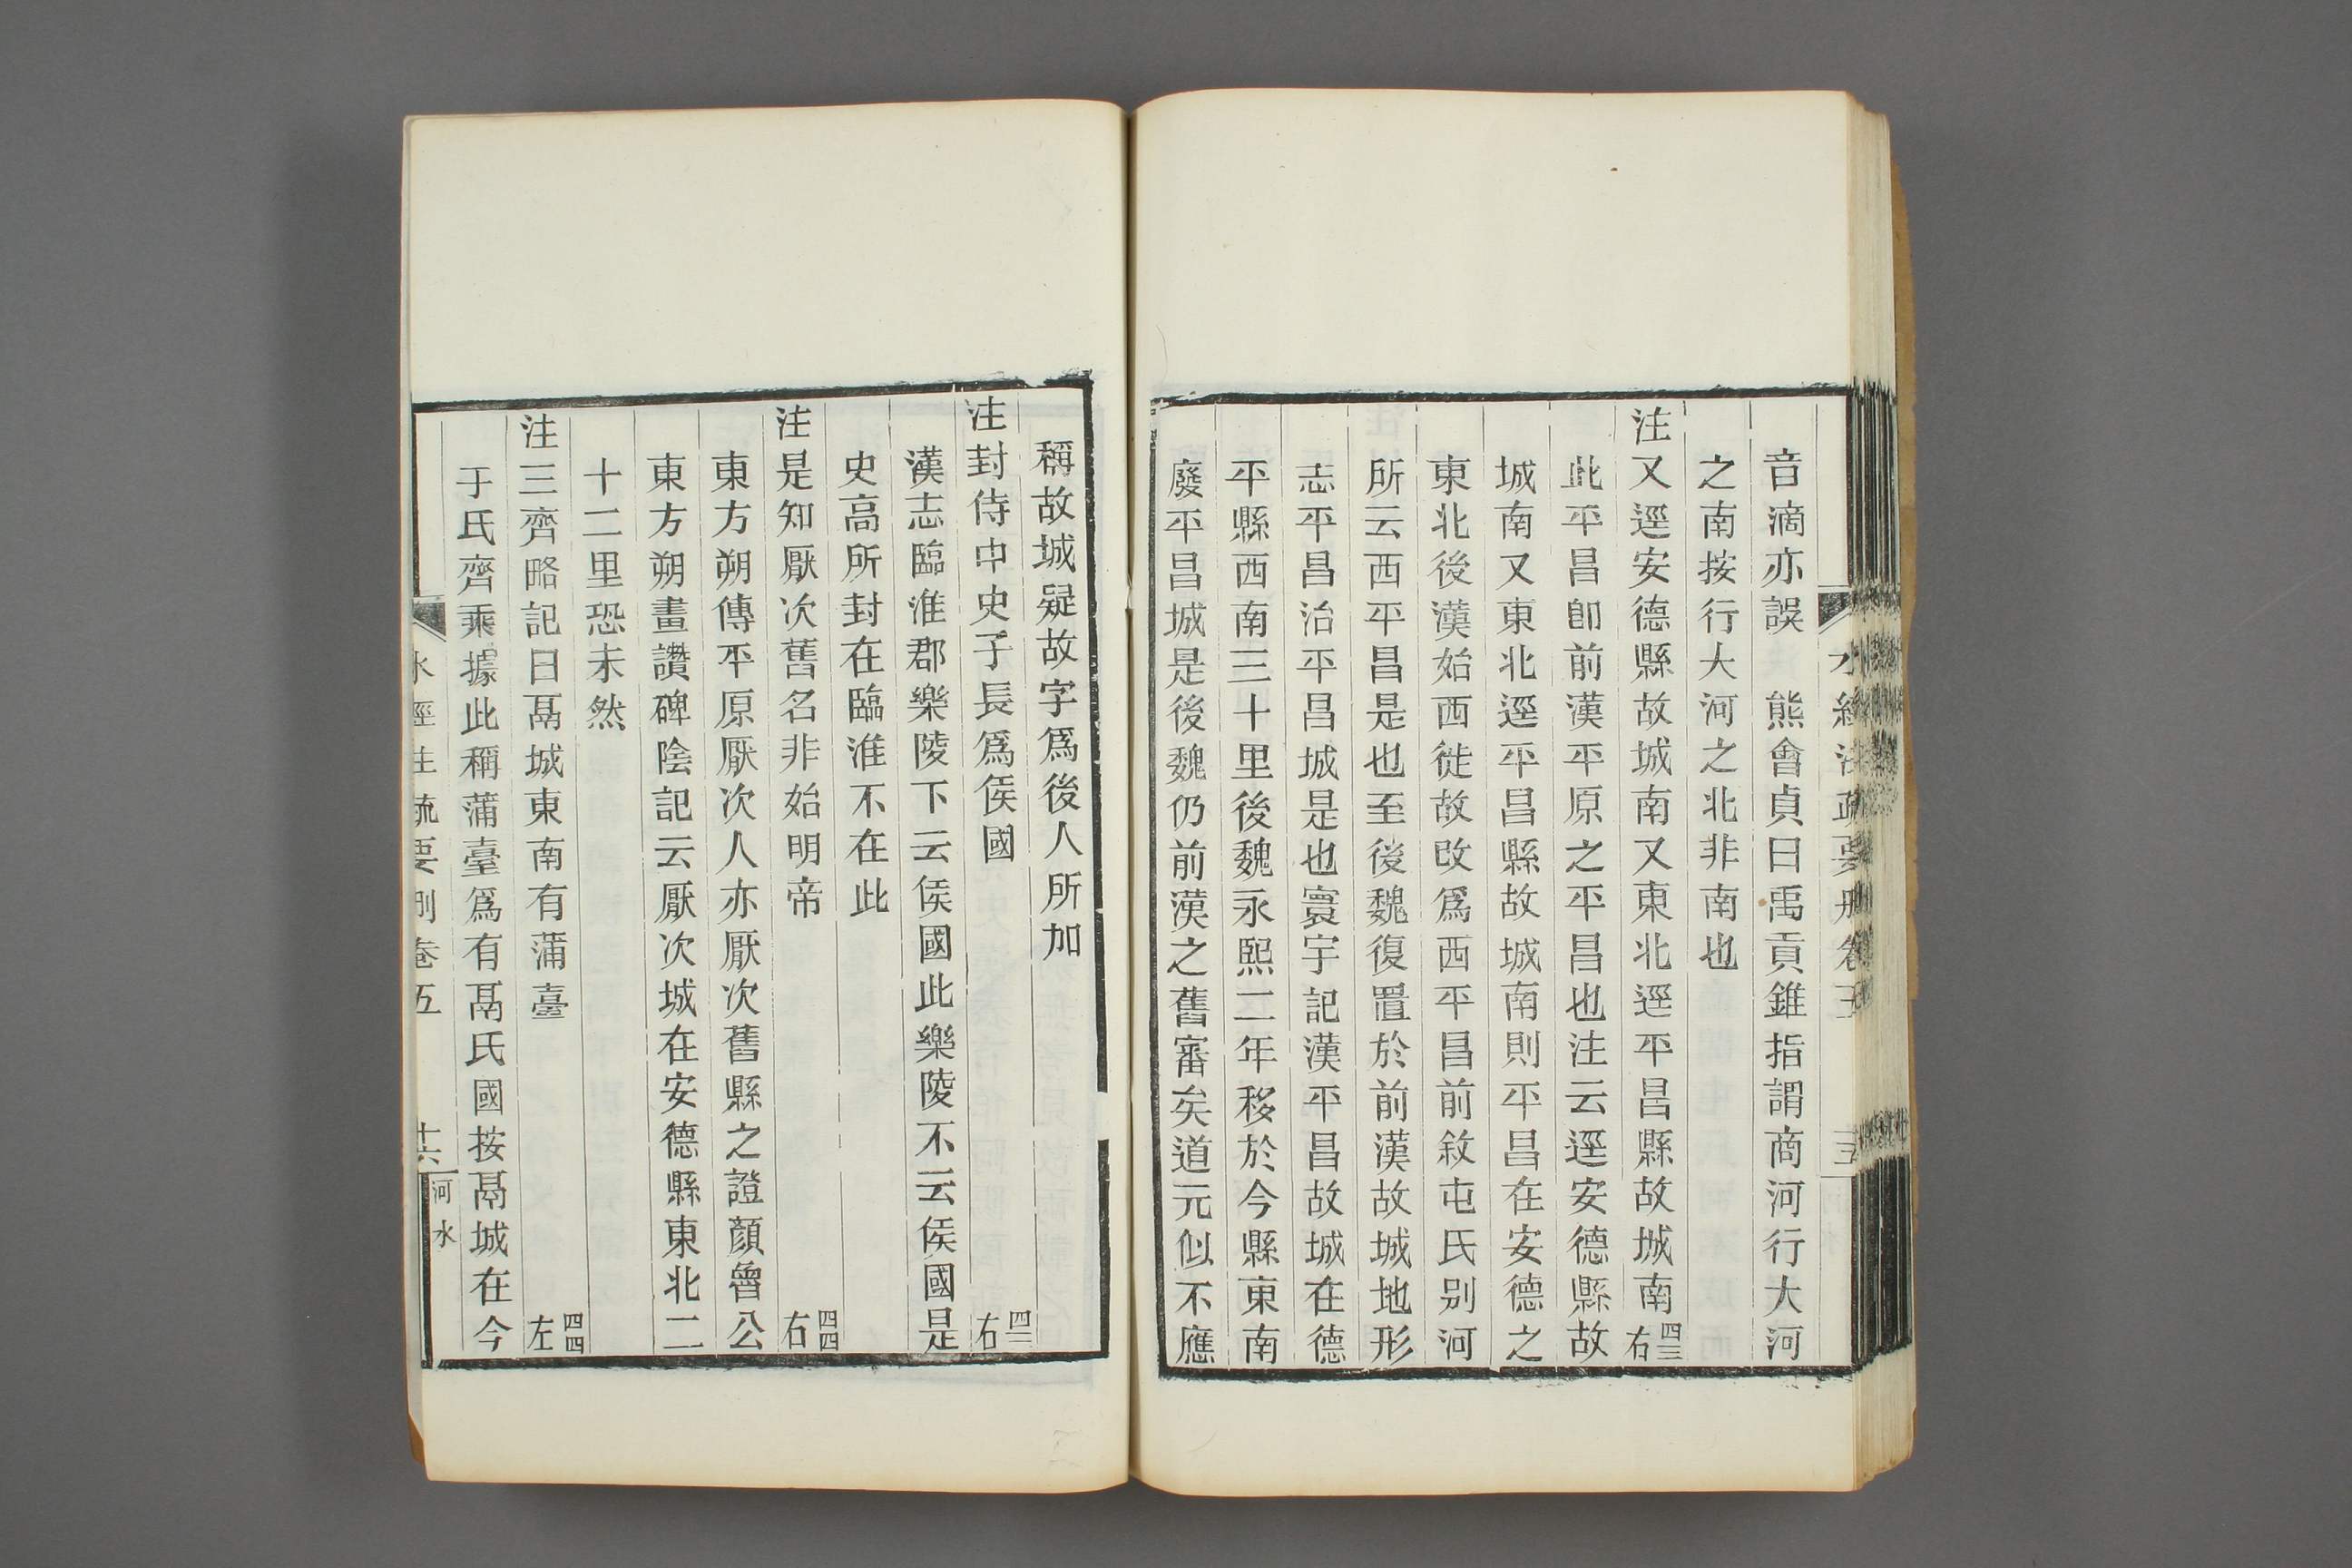 音滴亦誤　熊會貞曰禹貢錐指謂商河行大河
之南按行大河之北非南也
注又逕安德縣故城南又東北逕平昌縣故城南四三右
此平昌卽前漢平原之平昌也注云逕安德縣故
城南又東北逕平昌縣故城南則平昌在安德之
東北後漢始西徙故改爲西平昌前敘屯氏别河
所云西平昌是也至後魏復置於前漢故城地形
志平昌治平昌城是也寰宇記漢平昌故城在德
平縣西南三十里後魏永熙二年移於今縣東南
廢平昌城是後魏仍前漢之舊審矣道元似不應
稱故城疑故字爲後人所加
注封侍中史子長爲侯國右
漢志臨淮郡樂陵下云侯國此樂陵不云侯國是
史高所封在臨淮不在此
注是知厭次舊名非始明帝四四右
東方朔傳平原厭次人亦厭次舊縣之證顔魯公
東方朔畫讚碑陰記云厭次城在安德縣東北二
十二里恐未然
注三齊略記曰鬲城東南有蒲臺四四左
于氏齊乘據此稱蒲臺爲有鬲氏國按鬲城在今
水經注疏要删卷五
十六
河水